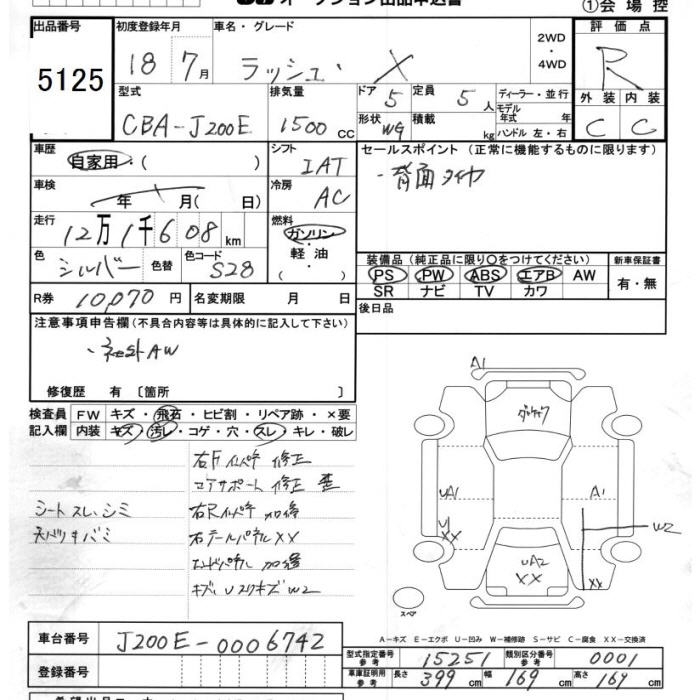 オークション出品申込書
①会場控
出品番号
5125
初度登録年月
18 7月
車名・グレード
ラッシュ・X
2WD
・
4WD
評価点
R
型式
CBA-J200E
排気量
1500 cc
ドア 5
定員 5人
ディーラー・並行
モデル年式 年
形状 WG
積載 kg
ハンドル 左・右
外装 内装
C C
車歴
自家用・( )
シフト
IAT
セールスポイント (正常に機能するものに限ります)
・背面タイヤ
車検
年 月( 日)
冷房
AC
走行
12万1千608km
燃料
ガソリン
・
軽油
・
( )
色
シルバー
色替
色コード
S28
装備品(純正品に限り○をつけてください)
新車保証書
PS PW ABS エアB AW
SR ナビ TV カワ
有・無
R券 10,070円
名変期限 月 日
後日品
注意事項申告欄(不具合内容等は具体的に記入して下さい)
・社外AW
修復歴 有 〔箇所 〕
検査員
記入欄
FW キズ・飛石・ヒビ割・リペア跡・×要
内装 キズ・汚レ・コゲ・穴・スレ・キレ・破レ
右Fインパネ 修正
コアサポート 修正
シートスレ、シミ
右Rインパネ 加修
右テールパネルXX
エンドパネル 加修
W2
A1
UA1
A1
U
XX
W2
UA2
XX
XX
スペア
A-キズ E-エクボ U-凹み W-補修跡 S-サビ C-腐食 XX-交換済
車台番号
J200E-0006742
登録番号
型式指定番号
参考
15251
類別区分番号
参考
0001
車庫証明用
参考
長さ 399cm
幅 169cm
高さ 169cm